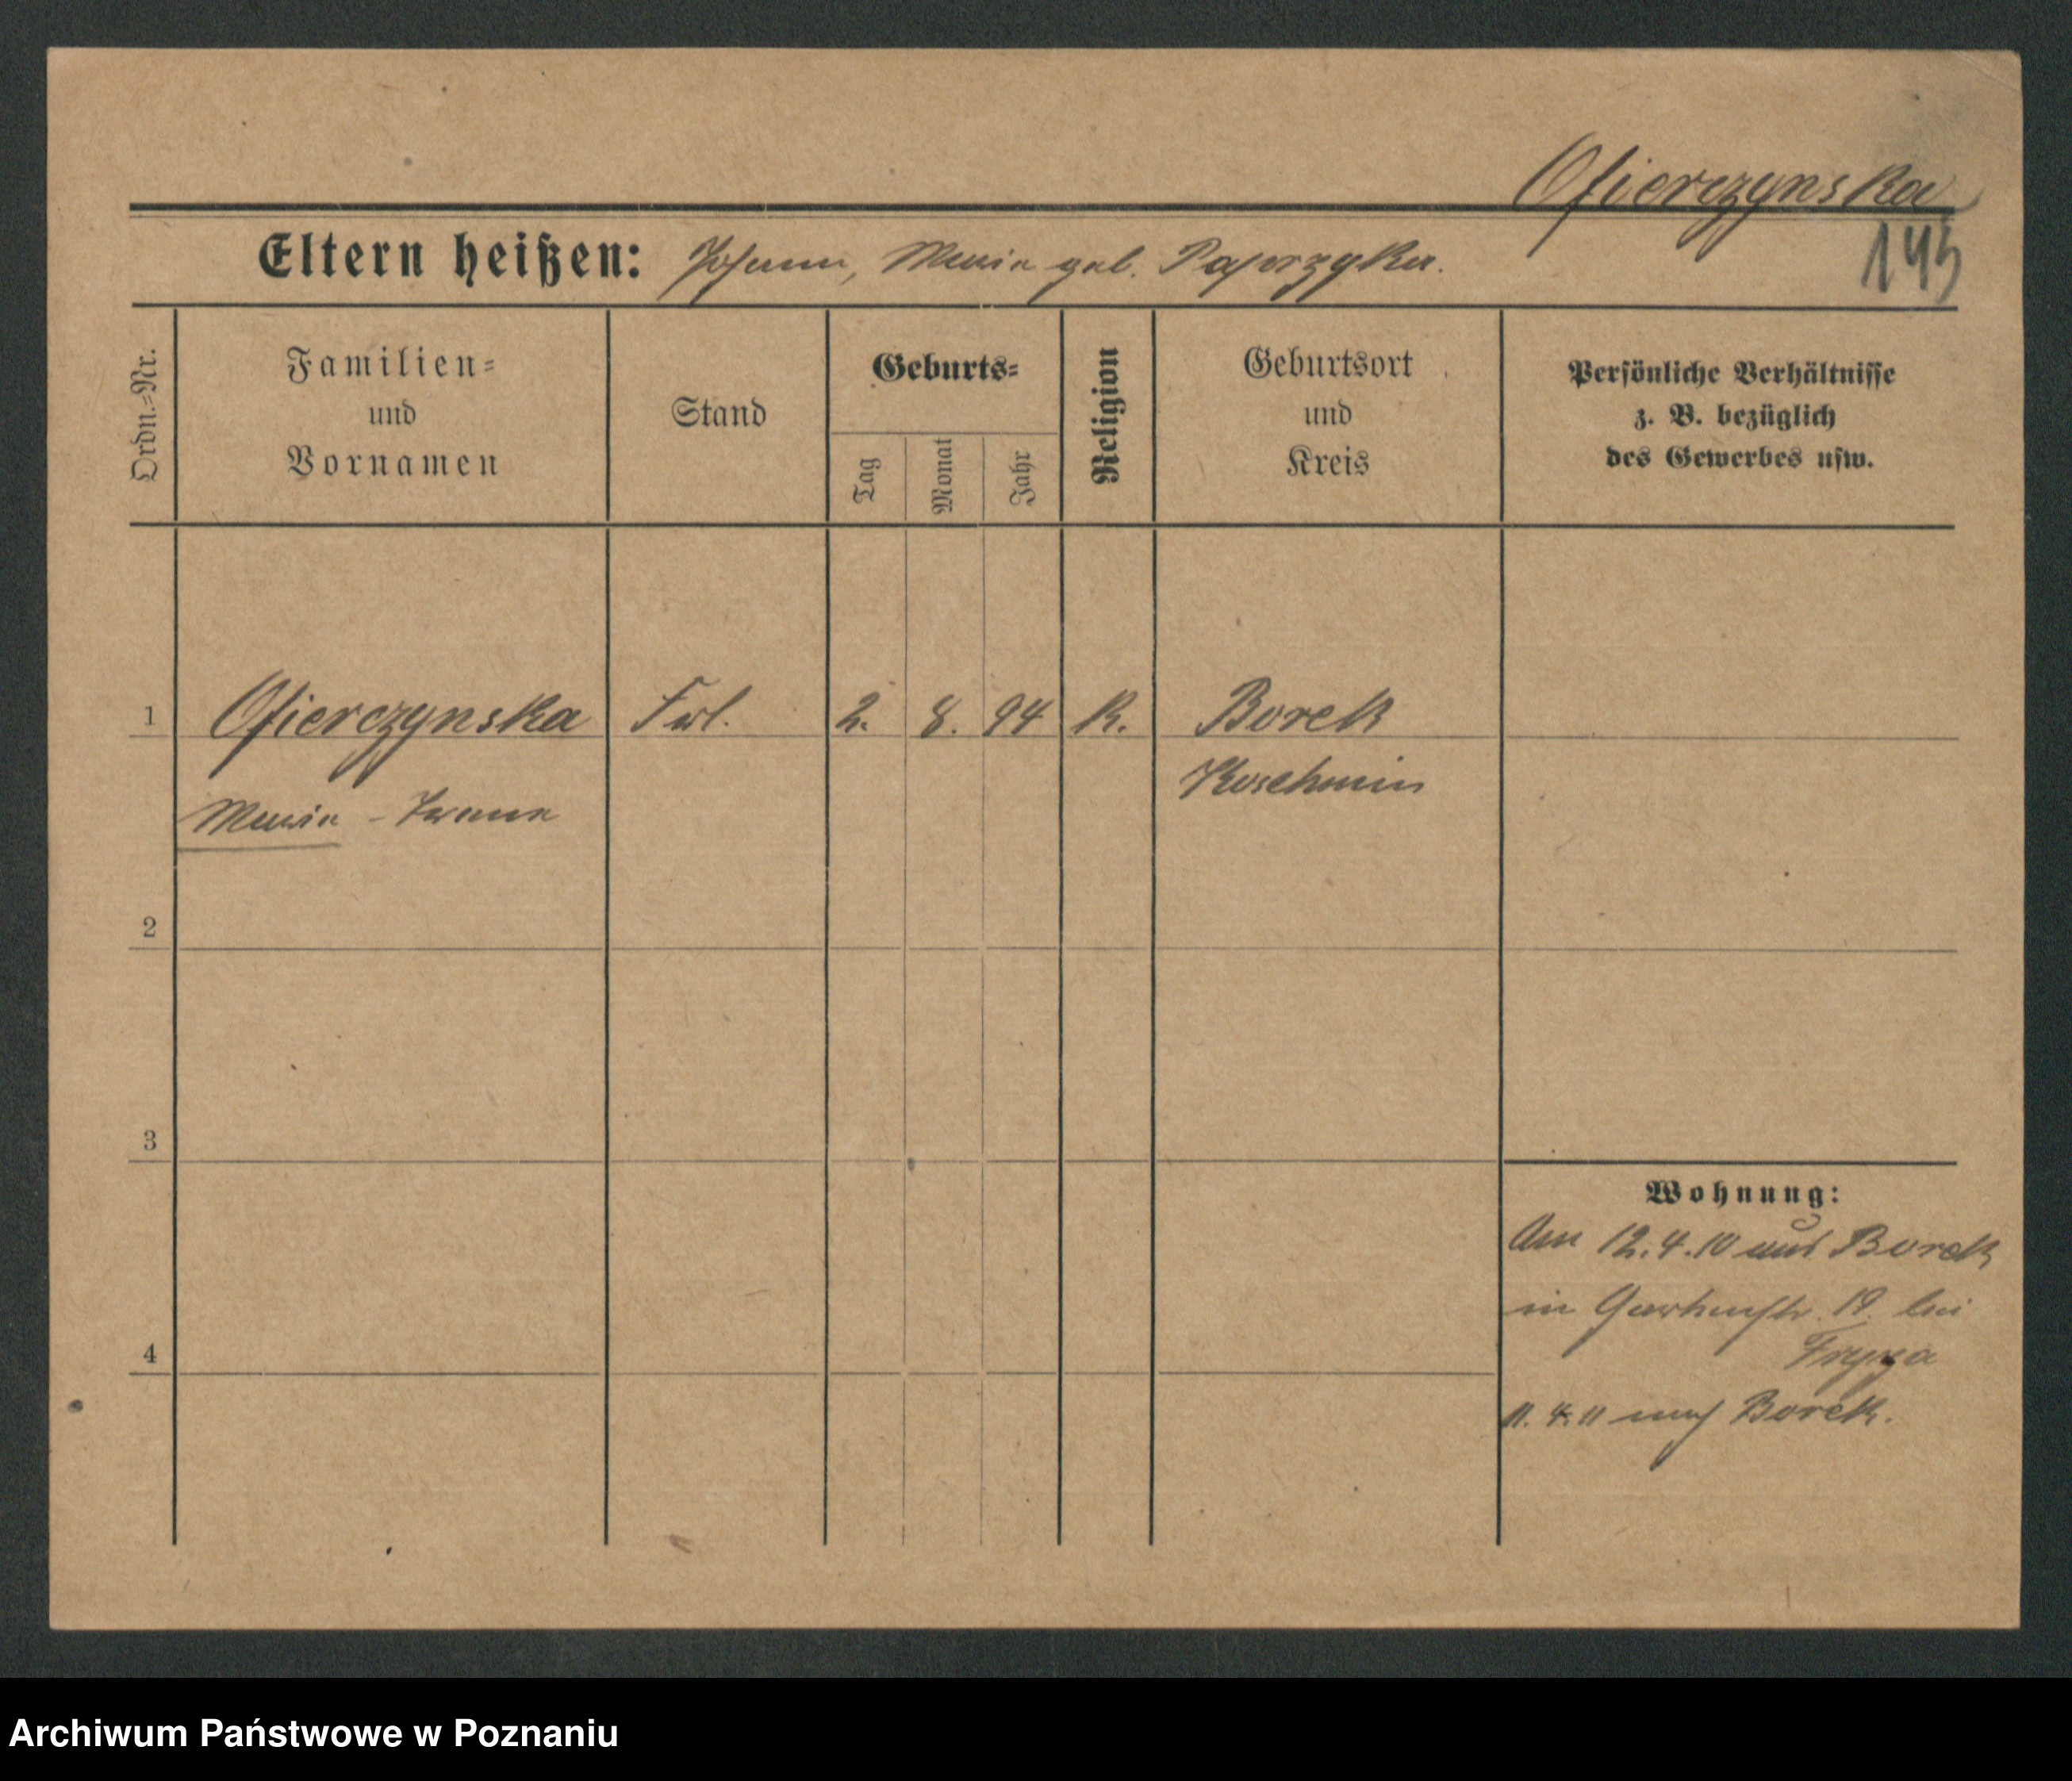 Ofierczynska
145
Eltern heißen: Johann, Maria geb.
Ordn.=Nr.
Familien=
und
Vornamen
Stand
Geburts=
Tag
Monat
Jahr
Religion
Geburtsort
und
Kreis
Persönliche Verhältnisse
z. B. bezüglich
des Gewerbes usw.
1 Ofierczynska Frl. 2. 8. 94 K. Borek
Koschmin
Maria -
2
3
4
Wohnung:
Am 12.4.10 aus Borek
in Gartenstr. 19. bei
11.4.11 nach Borek.
Archiwum Państwowe w Poznaniu